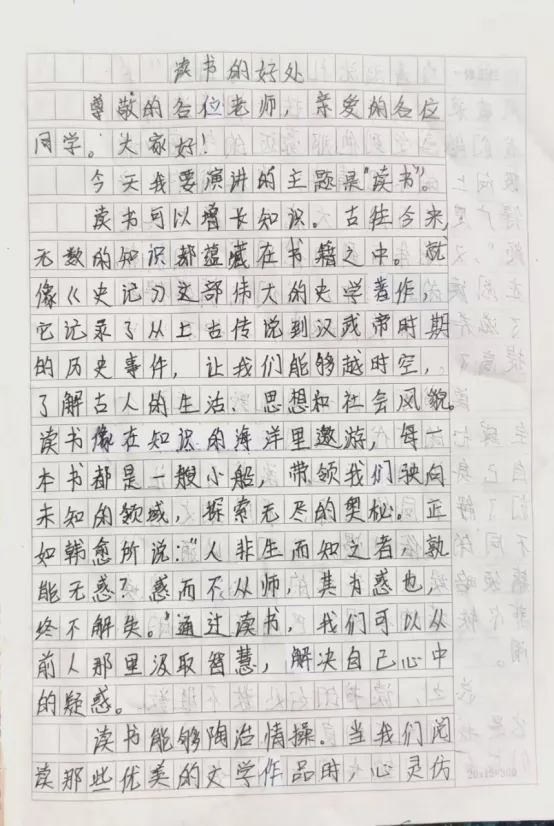 读书的好处
尊敬的各位老师，亲爱的各位
同学。大家好！
今天我要演讲的主题是"读书"。
读书可以增长知识。古往今来，
无数的知识都蕴藏在书籍之中。就
像《史记》这部伟大的史学著作，
它记录了从上古传说到汉武帝时期
的历史事件，让我们能够越时空，
了解古人的生活、思想和社会风貌。
读书像在知识的海洋里遨游，每一
本书都是一艘小船，带领我们驶向
未知的领域，探索无尽的奥秘。正
如韩愈所说："人非生而知之者，孰
能无惑？惑而不从师，其为惑也，
终不解矣。"通过读书，我们可以从
前人那里汲取智慧，解决自己心中
的疑惑。
读书能够陶冶情操。当我们阅
读那些优美的文学作品时，心灵仿
20×15=300